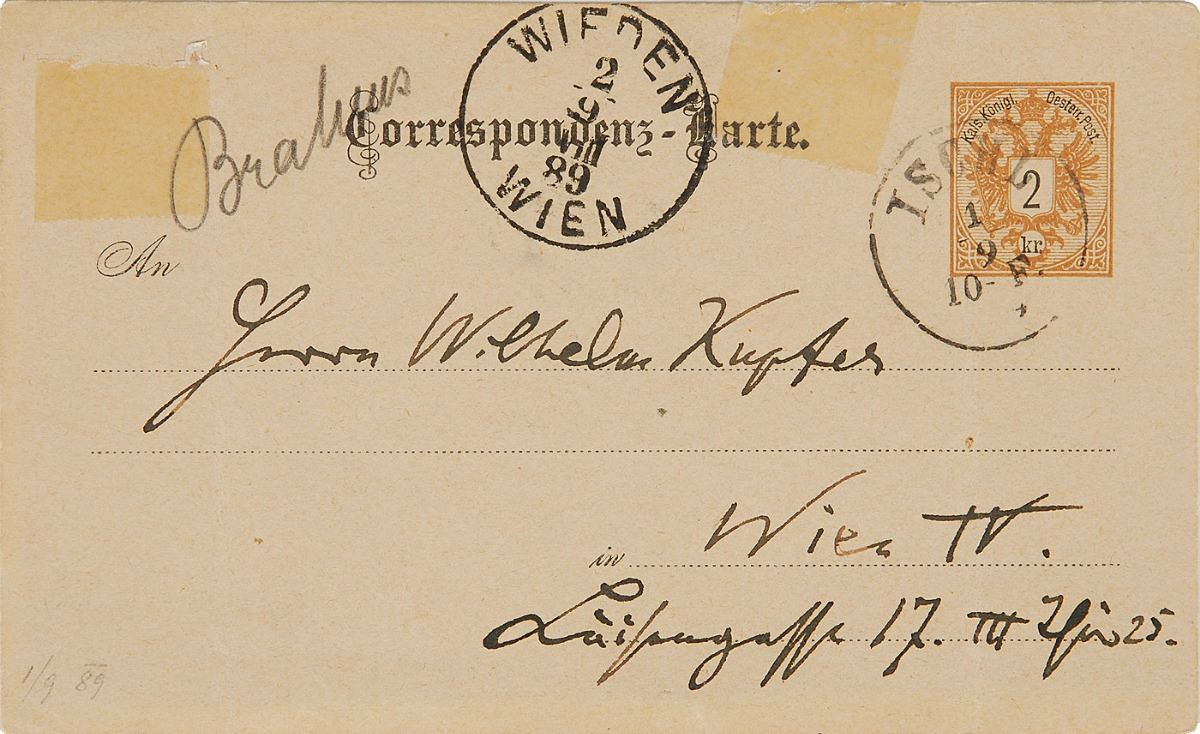 Brahms
WIEDEN
2
9
89
WIEN
Correspondenz-Karte.
Kais.Königl. Oesterr.Post.
2
kr
ISCHL
1
9
10- F.
An
Herrn Wilhelm Kupfer
in Wien IV.
Luisengasse 17. III Thür 25.
1/9 89